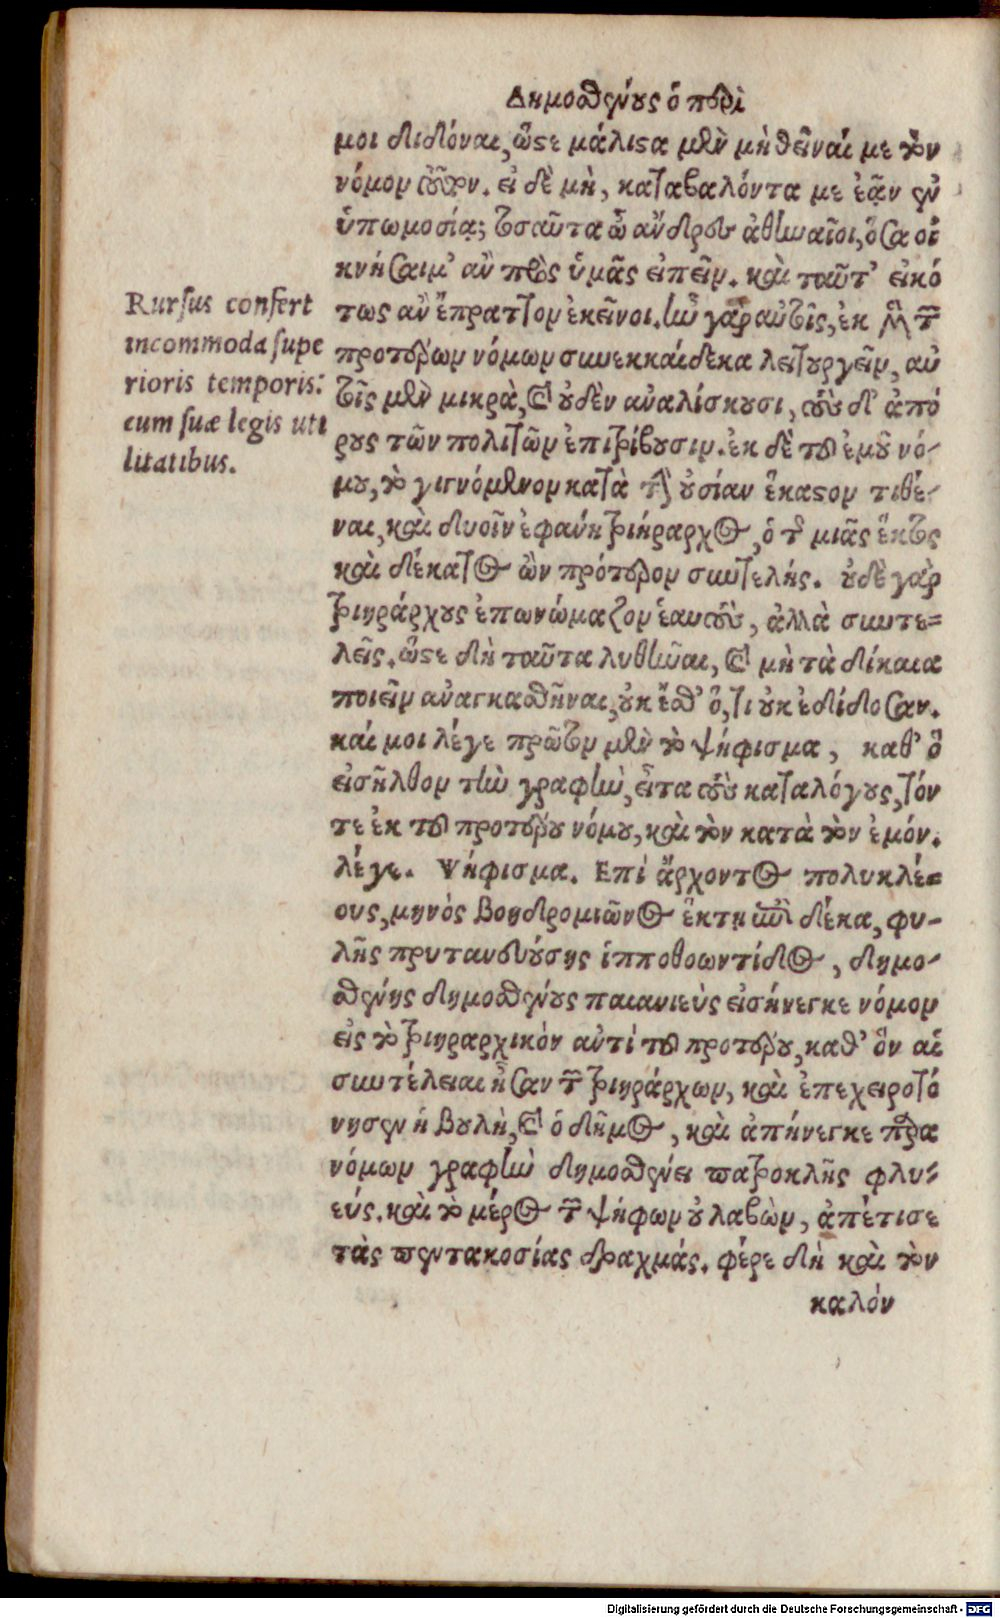 Δημοσθένους ὁ περὶ
μοι διδόναι, ὥστε μάλιστα μὲν μὴ θεῖναί με τὸν
νόμον τοῦτον. εἰ δὲ μὴ, καταβαλόντα με ἐᾷν ἐν
ὑπωμοσίᾳ; τοσαῦτα ὦ ἄνδρες ἀθηναῖοι, ὅσα οἱ
κνήσαιμ' ἂν πρὸς ὑμᾶς εἰπεῖν. καὶ ταῦτ' εἰκό
τως ἂν ἔπραττον ἐκεῖνοι. ἦν γὰρ αὐτοῖς, ἐκ μὲν τῶν
προτέρων νόμων συνεκκαίδεκα λειτουργεῖν, αὐ
τοῖς μὲν μικρὰ, καὶ οὐδὲν ἀναλίσκουσι, τοὺς δ' ἀπό
ρους τῶν πολιτῶν ἐπιτρίβουσιν. ἐκ δὲ τοῦ ἐμοῦ νό-
μου, τὸ γιγνόμενον κατὰ τὴν οὐσίαν ἕκαστον τιθέ-
ναι, καὶ δυοῖν ἐφάνη τριήραρχος, ὁ τῆς μιᾶς ἕκτος
καὶ δέκατος ὢν πρότερον συντελής. οὐδὲ γὰρ
τριηράρχους ἐπωνόμαζον ἑαυτοὺς, ἀλλὰ συντε=
λεῖς. ὥστε δὴ ταῦτα λυθῆναι, καὶ μὴ τὰ δίκαια
ποιεῖν ἀναγκασθῆναι, οὐκ ἔσθ' ὅ, τι οὐκ ἐδίδοσαν.
καί μοι λέγε πρῶτον μὲν τὸ ψήφισμα, καθ' ὃ
εἰσῆλθον τὴν γραφὴν, εἶτα τοὺς καταλόγους, τόν
τε ἐκ τοῦ προτέρου νόμου, καὶ τὸν κατὰ τὸν ἐμόν.
λέγε. Ψήφισμα. Επὶ ἄρχοντος πολυκλέ=
ους, μηνὸς βοηδρομιῶνος ἕκτῃ ἐπὶ δέκα, φυ-
λῆς πρυτανευούσης ἱπποθοωντίδος, δημο-
σθένης δημοσθένους παιανιεὺς εἰσήνεγκε νόμον
εἰς τὸ τριηραρχικὸν ἀντὶ τοῦ προτέρου, καθ' ὃν αἱ
συντέλειαι ἦσαν τῶν τριηράρχων, καὶ ἐπεχειροτό
νησεν ἡ βουλὴ, καὶ ὁ δῆμος, καὶ ἀπήνεγκε παρα
νόμων γραφὴν δημοσθένει πατροκλῆς φλυ-
εύς. καὶ τὸ μέρος τῶν ψήφων οὐ λαβὼν, ἀπέτισε
τὰς πεντακοσίας δραχμάς. φέρε δὴ καὶ τὸν
καλόν
Rursus confert
incommoda supe
rioris temporis:
cum suæ legis uti
litatibus.
Digitalisierung gefördert durch die Deutsche Forschungsgemeinschaft - DFG